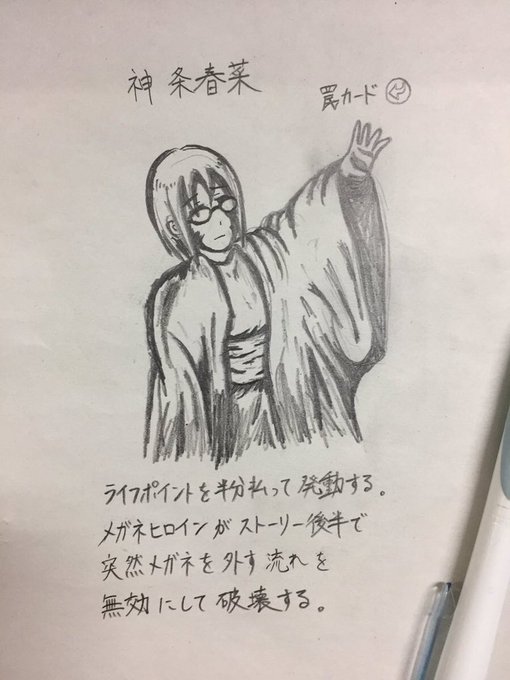 神条春菜
罠カード
ライフポイントを半分払って発動する。
メガネヒロインがストーリー後半で
突然メガネを外す流れを
無効にして破壊する。